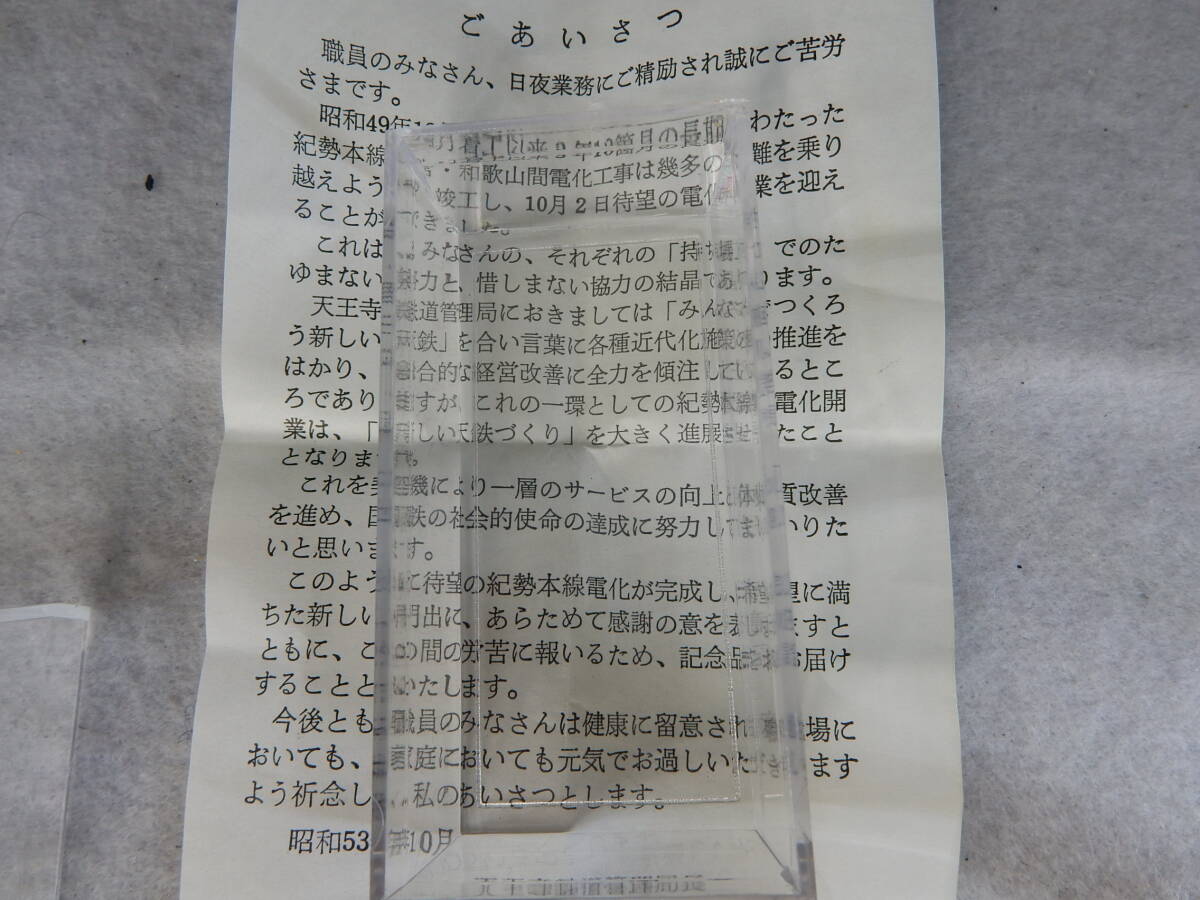 ごあいさつ
職員のみなさん、日夜業務にご精励され誠にご苦労
さまです。
昭和49年 着工以来3年10箇月の長期 わたった
紀勢本線 ・和歌山間電化工事は幾多の 難を乗り
越えよう 竣工し、10月2日待望の電化 業を迎え
ることができました。
これは、 みなさんの、それぞれの「持ち場」 でのた
ゆまない努力と、惜しまない協力の結晶であります。
天王寺鉄道管理局におきましては「みんなでつくろ
う新しい天鉄」を合い言葉に各種近代化施策の推進を
はかり、総合的な経営改善に全力を傾注しているとこ
ろでありますが、これの一環としての紀勢本線電化開
業は、「新しい天鉄づくり」を大きく進展させたこと
となります。
これを契機により一層のサービスの向上と体質改善
を進め、国鉄の社会的使命の達成に努力してまいりた
いと思います。
このように待望の紀勢本線電化が完成し、希望に満
ちた新しい門出に、あらためて感謝の意を表しますと
ともに、この間の労苦に報いるため、記念品をお届け
することといたします。
今後とも職員のみなさんは健康に留意され 場に
おいても、家庭においても元気でお過しいただきます
よう祈念し、私のあいさつとします。
昭和53年10月
天王寺鉄道管理局長